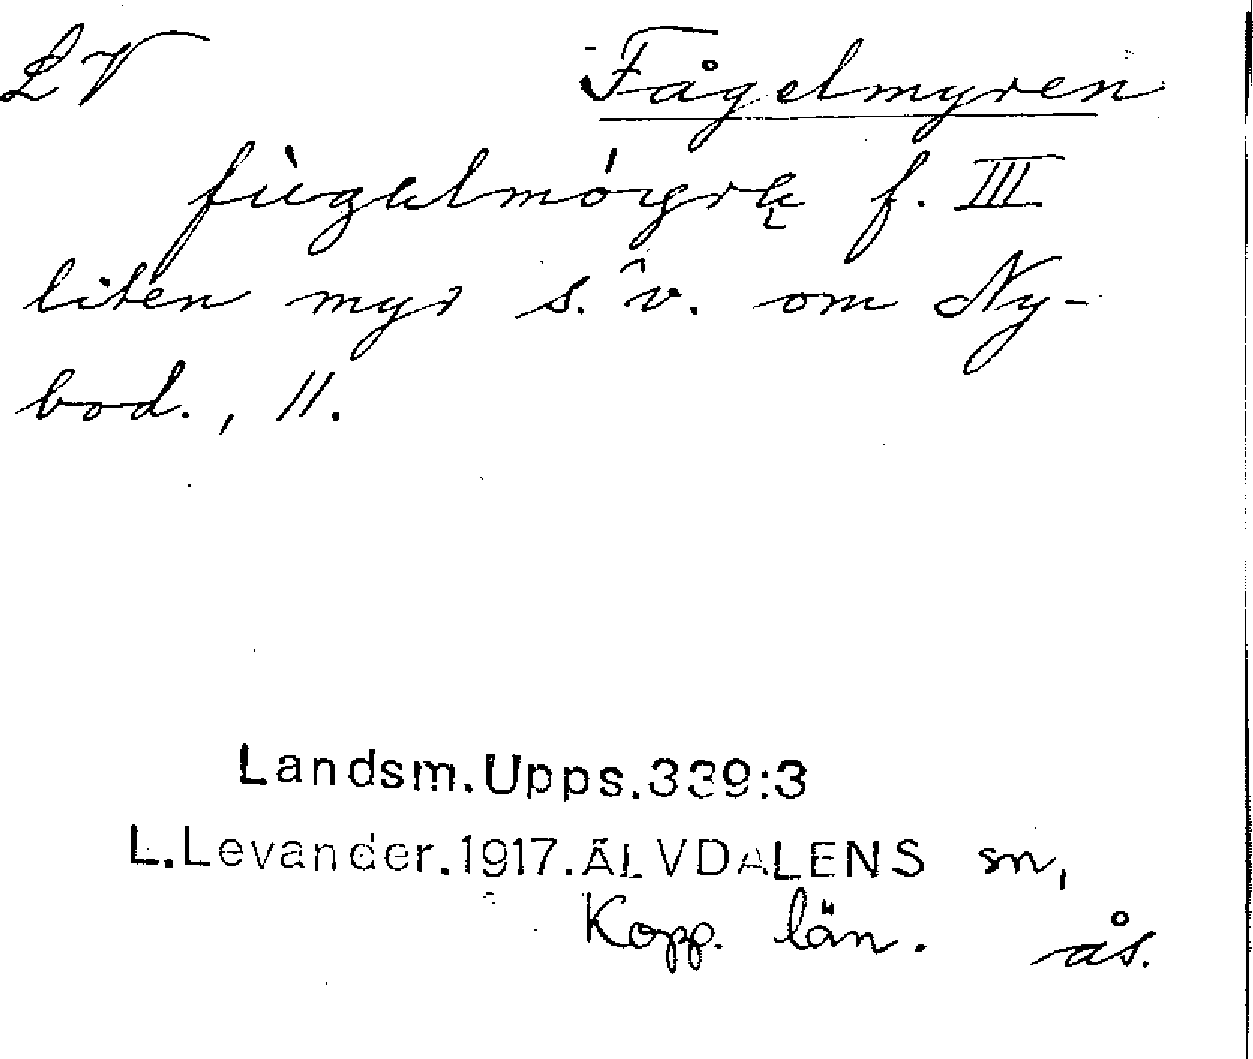 LV Fågelmyren
fùgelmóyrę f. III
liten myr s. v. om Ny-
bod., 11.
Landsm.Upps.339:3
L.Levander.1917.ÄLVDALENS sn,
Kopp. län. ås.